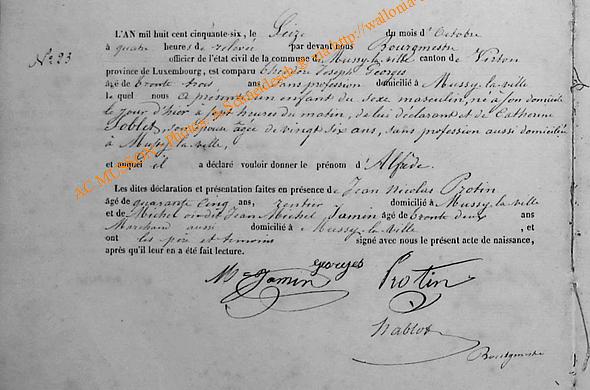 L'AN mil huit cent cinquante-six, le Seize du mois d'Octobre
N° 23
à quatre heures de relevée par devant nous Bourgmestre
officier de l'état civil de la commune de Mussy-la-ville canton de Virton
province de Luxembourg, est comparu Théodore Joseph Georges
âgé de trente trois ans, sans profession domicilié à Mussy-la-ville
le quel nous a présenté un enfant du sexe masculin, né à son domicile
le jour d'hier à sept heures du matin, de lui déclarant et de Catherine
Goblet, son épouse âgée de vingt six ans, sans profession aussi domiciliée
à Mussy-la-ville
et auquel il a déclaré vouloir donner le prénom d'Alfède.
Les dites déclaration et présentation faites en présence de Jean Nicolas Protin
âgé de quarante cinq ans, rentier domicilié à Mussy-la-ville
et de Michel Jean Michel Jamin âgé de trente deux ans
Marchand aussi domicilié à Mussy-la-ville, et
ont les père et témoins signé avec nous le présent acte de naissance,
après qu'il leur en a été fait lecture.
Georges
M Jamin
Protin
Nablot
Bourgmestre
AC MUSSON, Photos http://wallonia